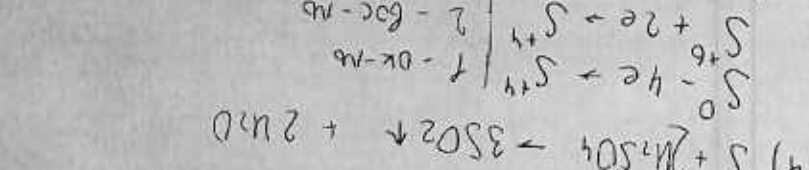 4) S + 2H₂SO₄ → 3SO₂↑ + 2H₂O
S⁰ - 4e → S⁺⁴ | 1 - ок-ль
S⁺⁶ + 2e → S⁺⁴ | 2 - вос-ль